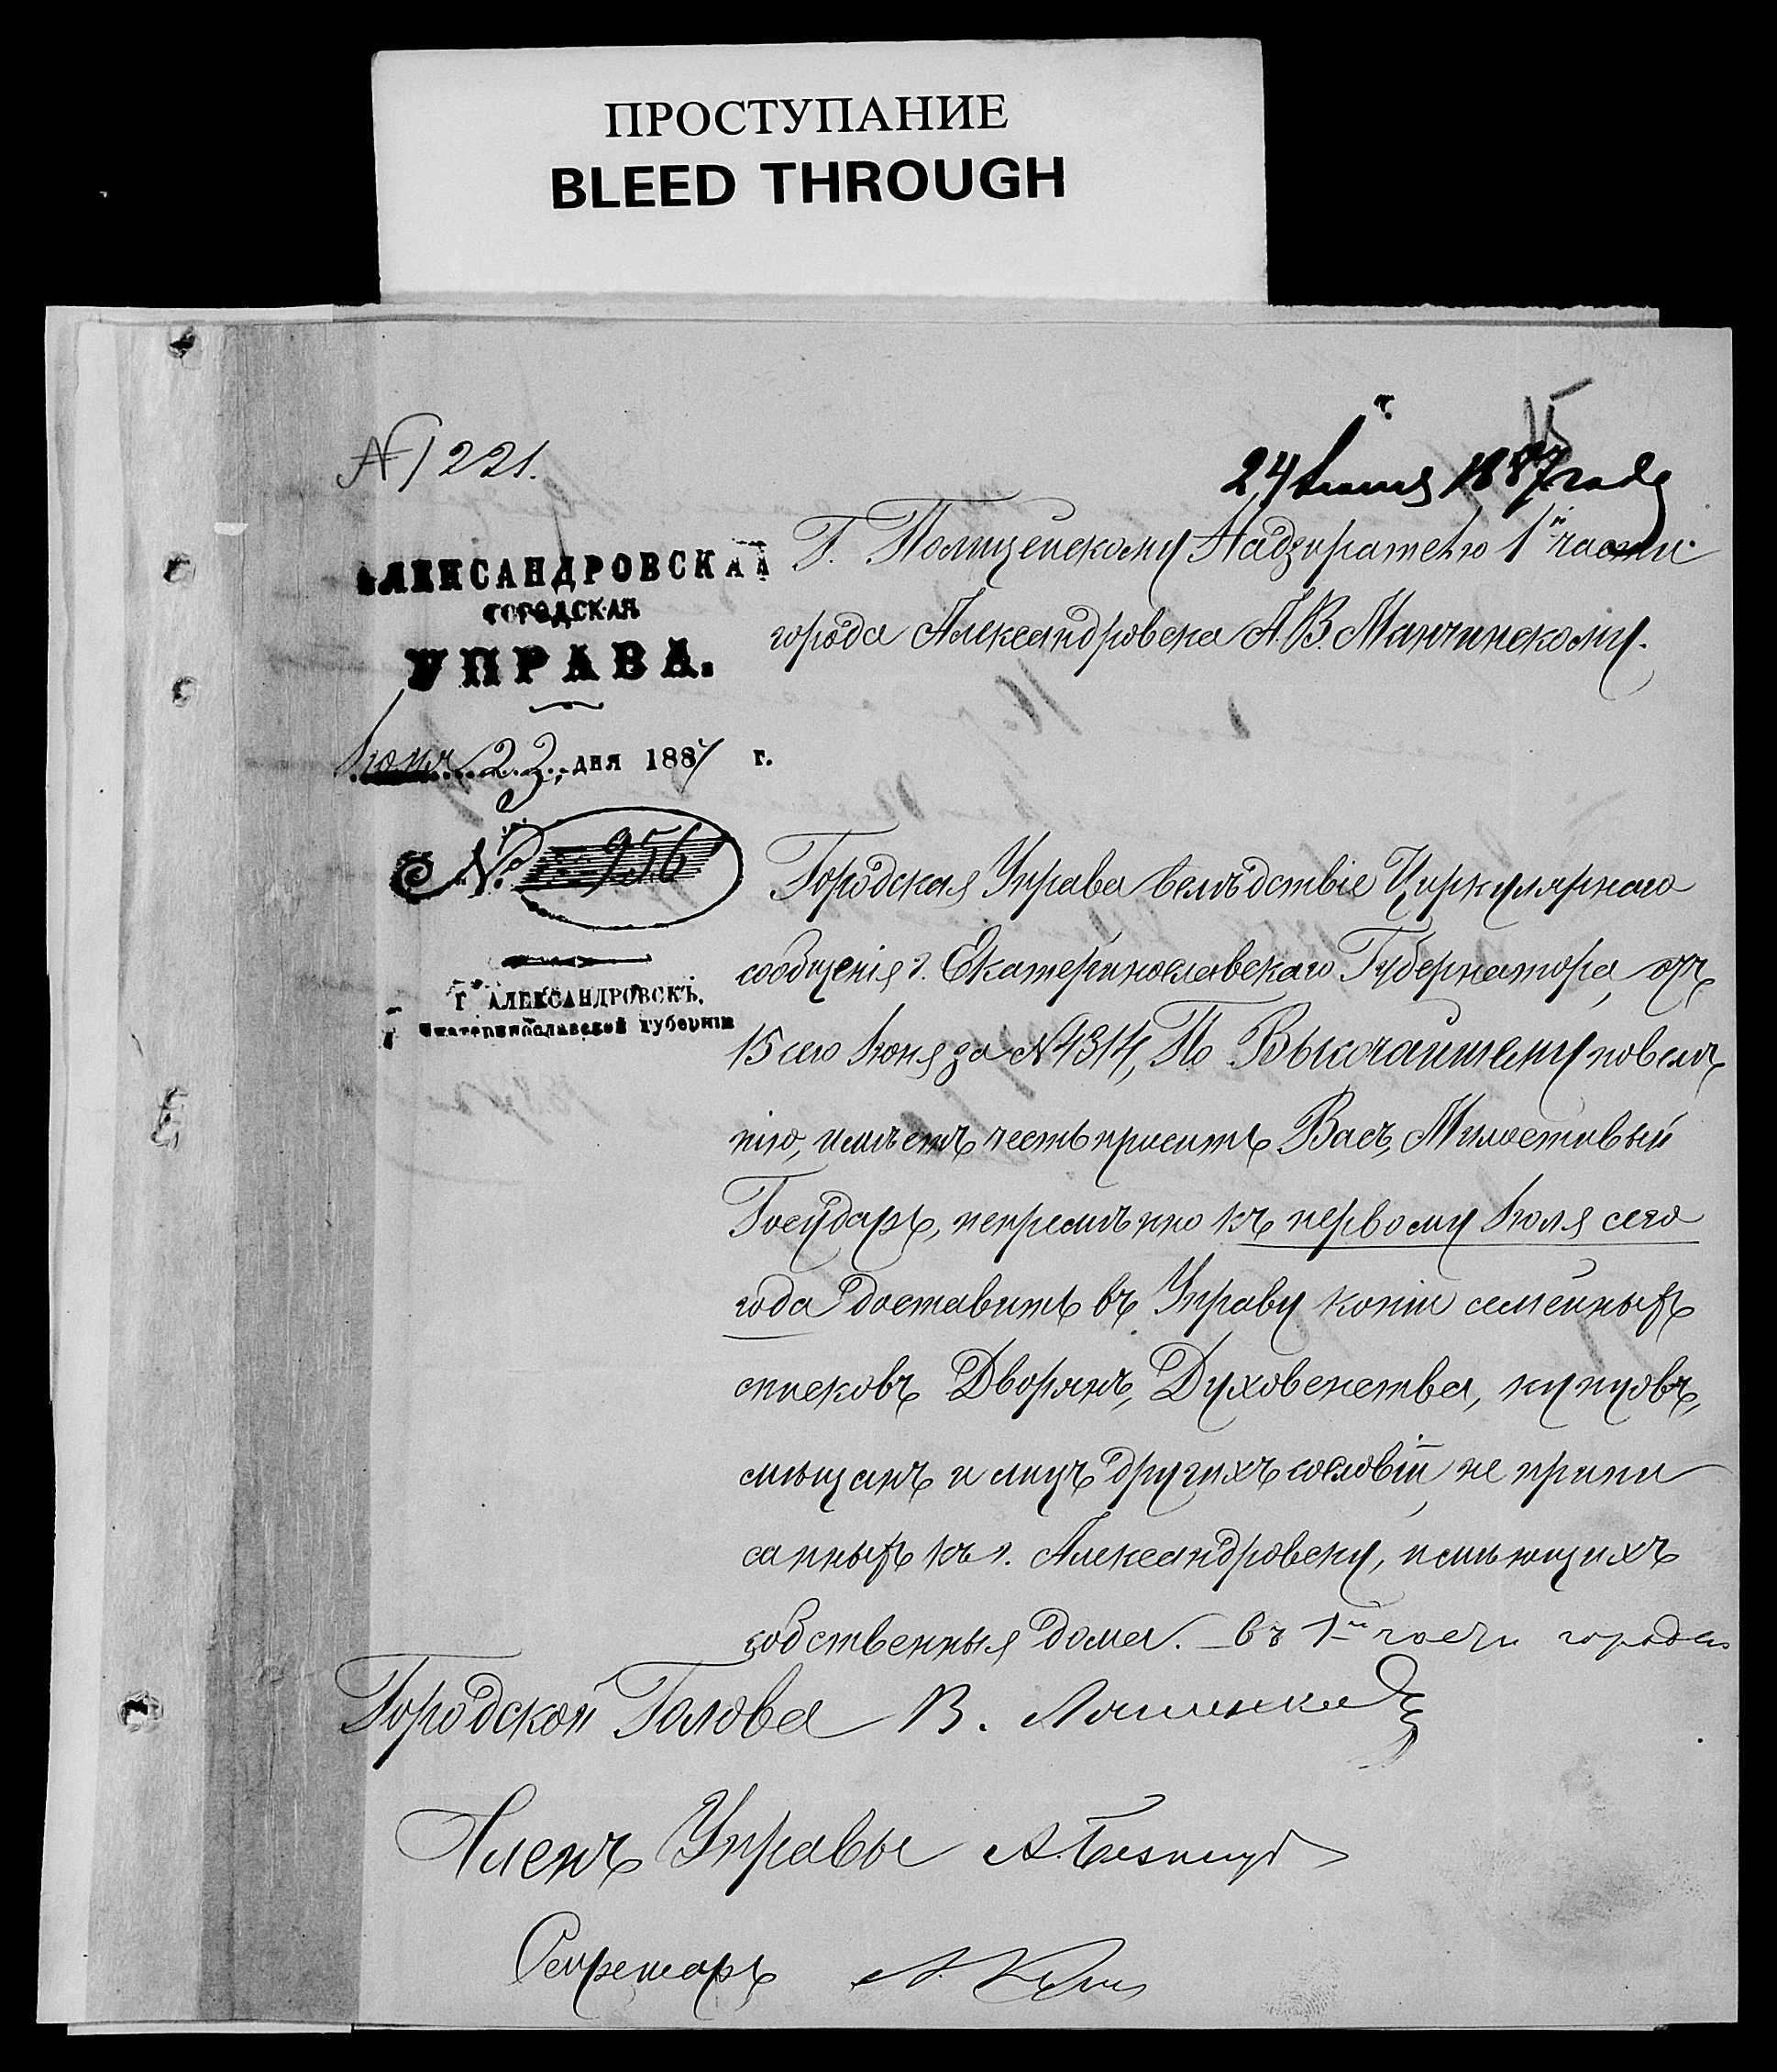 ПРОСТУПАНИЕ
BLEED THROUGH
15
№ 1221.
24 Іюня 1887 года
АЛЕКСАНДРОВСКАЯ
ГОРОДСКАЯ
УПРАВА.
Іюня 23 дня 1887 г.
№ 956
Г. АЛЕКСАНДРОВСКЪ,
Екатеринославской губерніи
Г. Полицейскому Надзирателю 1й части
города Александровска А. В. Манчинскому.
Городская Управа вслѣдствіе Циркулярнаго
сообщенія г. Екатеринославскаго Губернатора, отъ
15 сего Іюня за № 4314, По Высочайшему повелѣ
нію, имѣетъ честь просить Васъ, Милостивый
Государь, непремѣнно къ первому Іюля сего
года доставить въ Управу копіи семейныхъ
списковъ Дворянъ, Духовенства, купцовъ,
мѣщанъ и лицъ другихъ сословій, не припи
санныхъ къ г. Александровску, имѣющихъ
собственныя дома. – въ 1й части города
Городской Голова В. Ляшенко
Членъ Управы А.
Секретарь